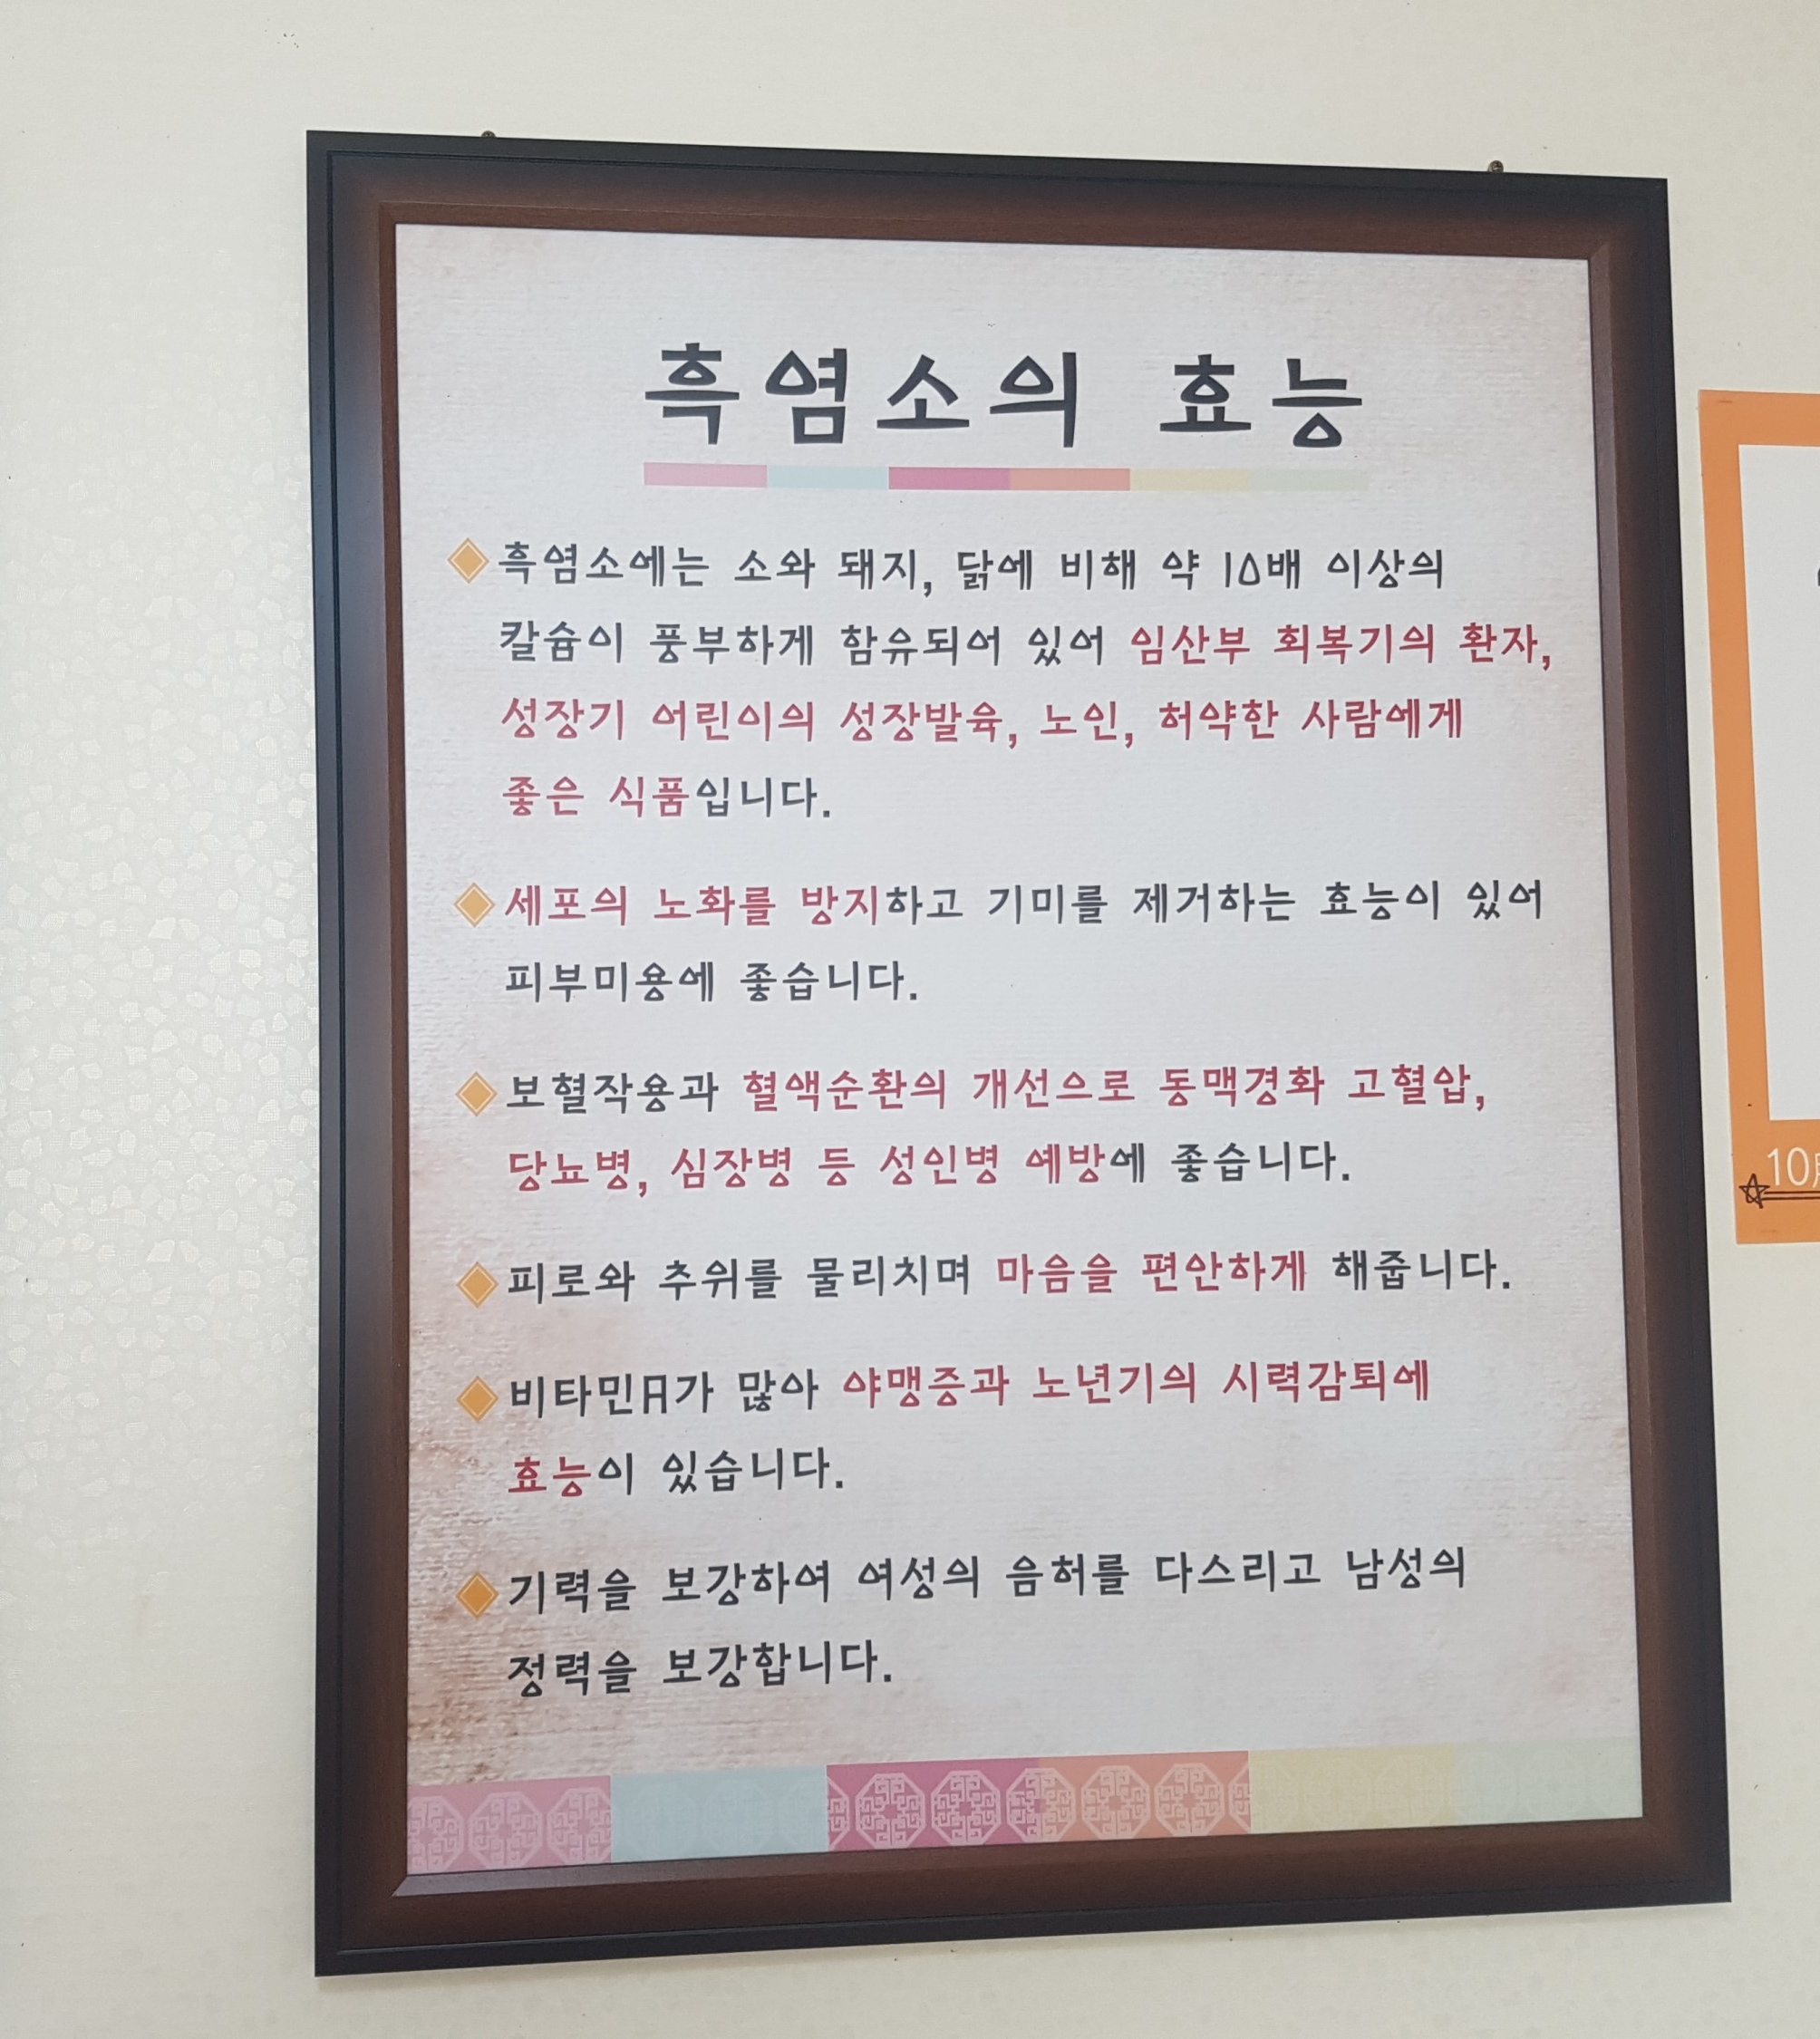 흑염소의 효능
흑염소에는 소와 돼지, 닭에 비해 약 10배 이상의
칼슘이 풍부하게 함유되어 있어 임산부 회복기의 환자,
성장기 어린이의 성장발육, 노인, 허약한 사람에게
좋은 식품입니다.
세포의 노화를 방지하고 기미를 제거하는 효능이 있어
피부미용에 좋습니다.
보혈작용과 혈액순환의 개선으로 동맥경화 고혈압,
당뇨병, 심장병 등 성인병 예방에 좋습니다.
피로와 추위를 물리치며 마음을 편안하게 해줍니다.
비타민A가 많아 야맹증과 노년기의 시력감퇴에
효능이 있습니다.
기력을 보강하여 여성의 음허를 다스리고 남성의
정력을 보강합니다.
10